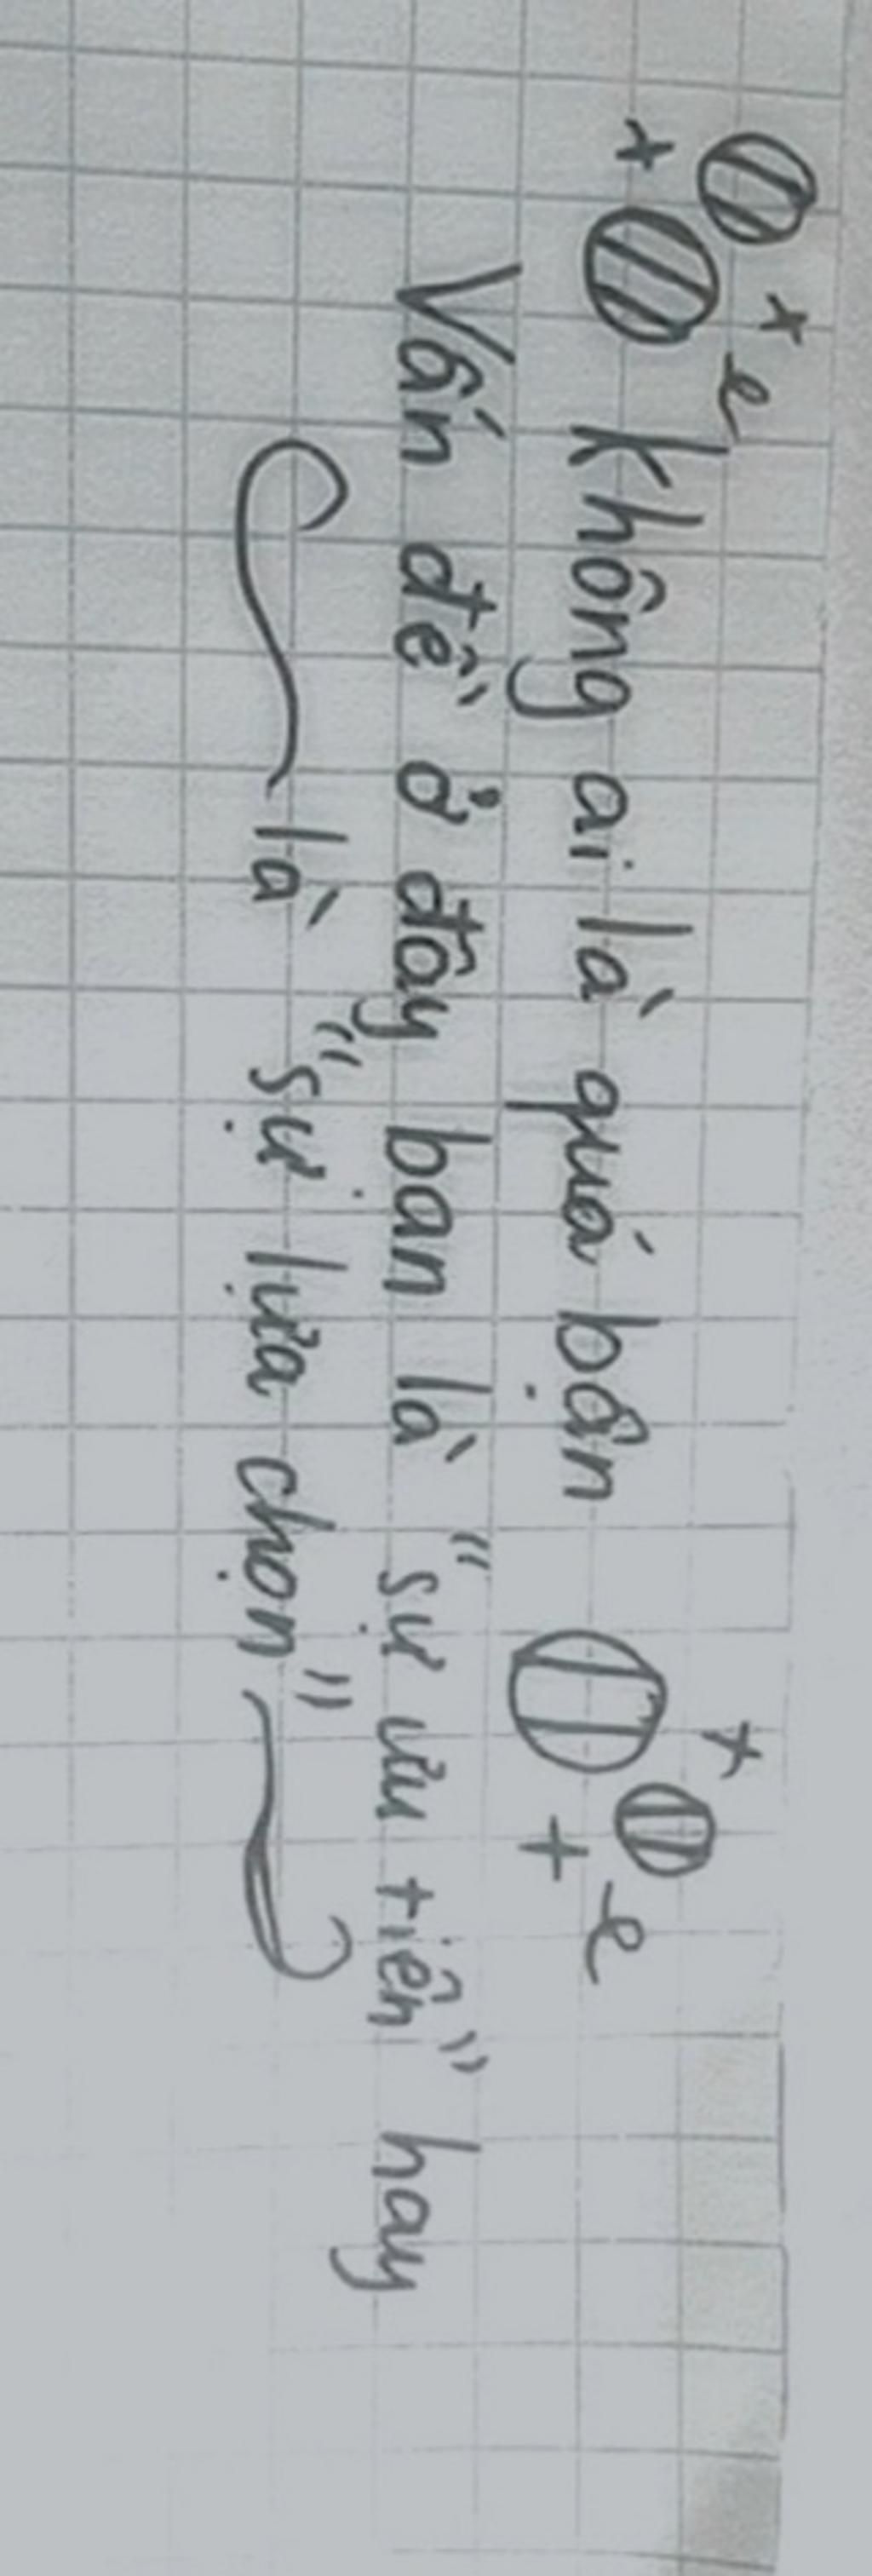 Không ai là quá bận
Vấn đề ở đây bạn là "sự ưu tiên" hay
là "sự lựa chọn"